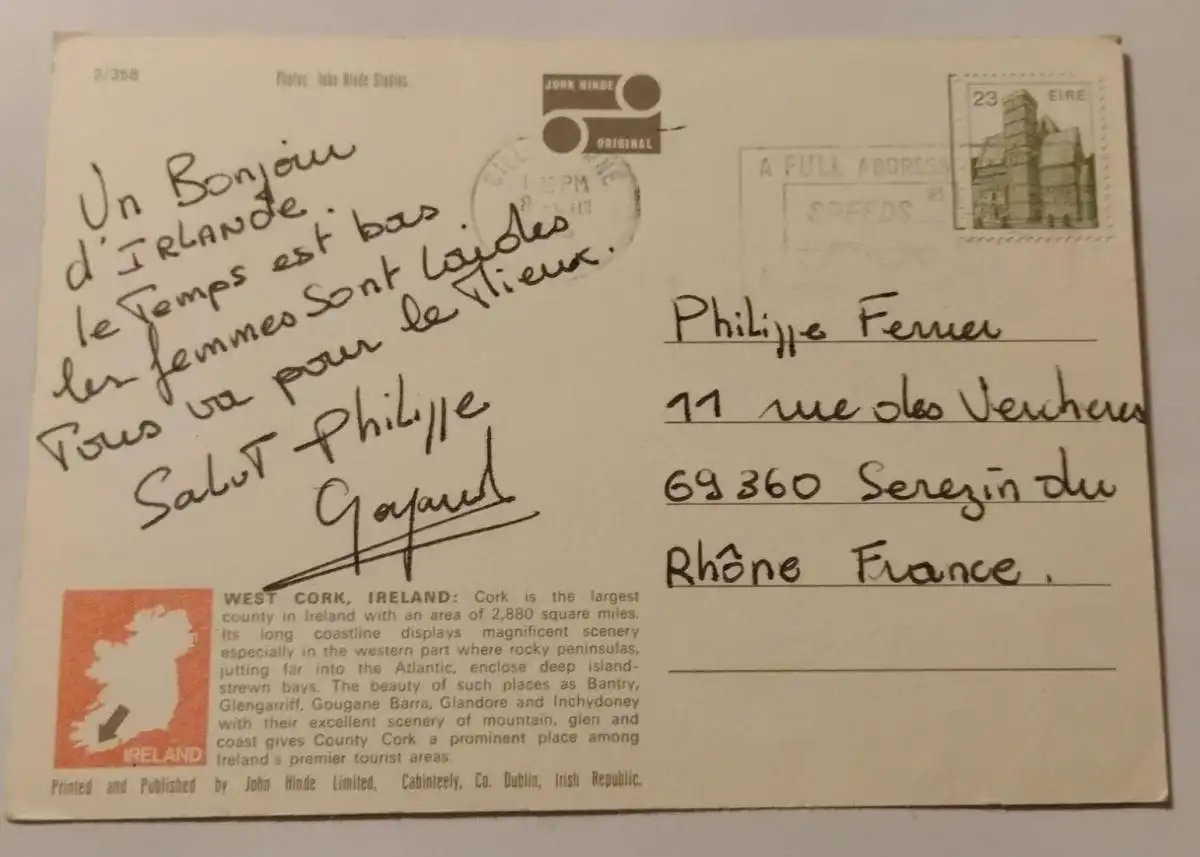 2/358
Photos: John Hinde Studios.
JOHN HINDE
ORIGINAL
23 EIRE
A FULL ADDRESS
SPEEDS
PM
Un Bonjour
d'IRLANDE.
le Temps est bas
les femmes Sont Laides
Tous va pour le Mieux.
Salut Philippe
Philippe Ferrier
11 rue des Vercheres
69360 Serezin du
Rhône France.
WEST CORK, IRELAND: Cork is the largest
county in Ireland with an area of 2,880 square miles.
Its long coastline displays magnificent scenery
especially in the western part where rocky peninsulas,
jutting far into the Atlantic, enclose deep island-
strewn bays. The beauty of such places as Bantry,
Glengarriff, Gougane Barra, Glandore and Inchydoney
with their excellent scenery of mountain, glen and
coast gives County Cork a prominent place among
Ireland's premier tourist areas.
IRELAND
Printed and Published by John Hinde Limited, Cabinteely, Co. Dublin, Irish Republic.